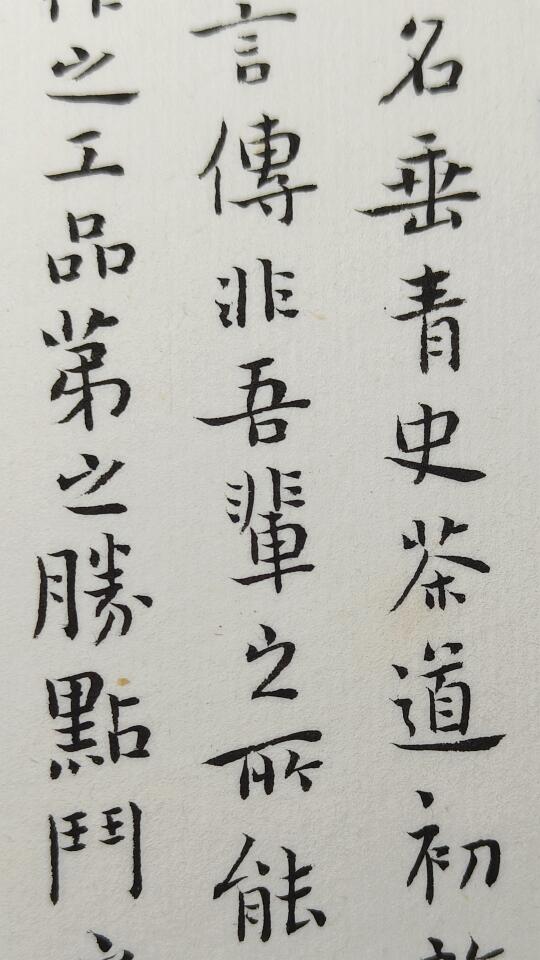 名垂青史茶道初
言傳非吾輩之所能
之工品第之勝點鬥